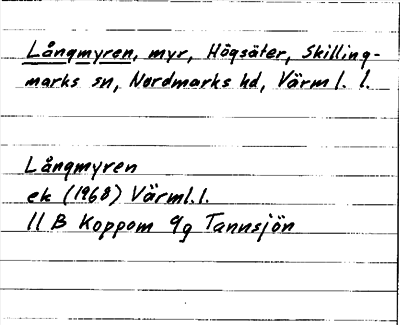 Långmyren, myr, Högsäter, Skilling-
marks sn, Nordmarks hd, Värml. l.
Långmyren
ek (1968) Värml. l.
11 B Koppom 9g Tannsjön